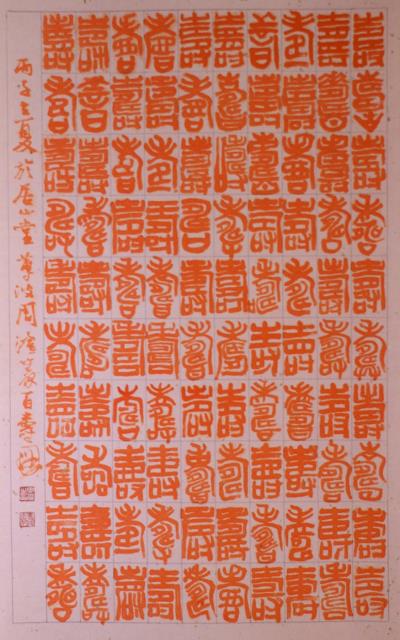 壽壽壽壽壽壽壽壽壽壽
壽壽壽壽壽壽壽壽壽壽
壽壽壽壽壽壽壽壽壽壽
壽壽壽壽壽壽壽壽壽壽
壽壽壽壽壽壽壽壽壽壽
壽壽壽壽壽壽壽壽壽壽
壽壽壽壽壽壽壽壽壽壽
壽壽壽壽壽壽壽壽壽壽
壽壽壽壽壽壽壽壽壽壽
壽壽壽壽壽壽壽壽壽壽
丙子之夏於山堂周篆百壽